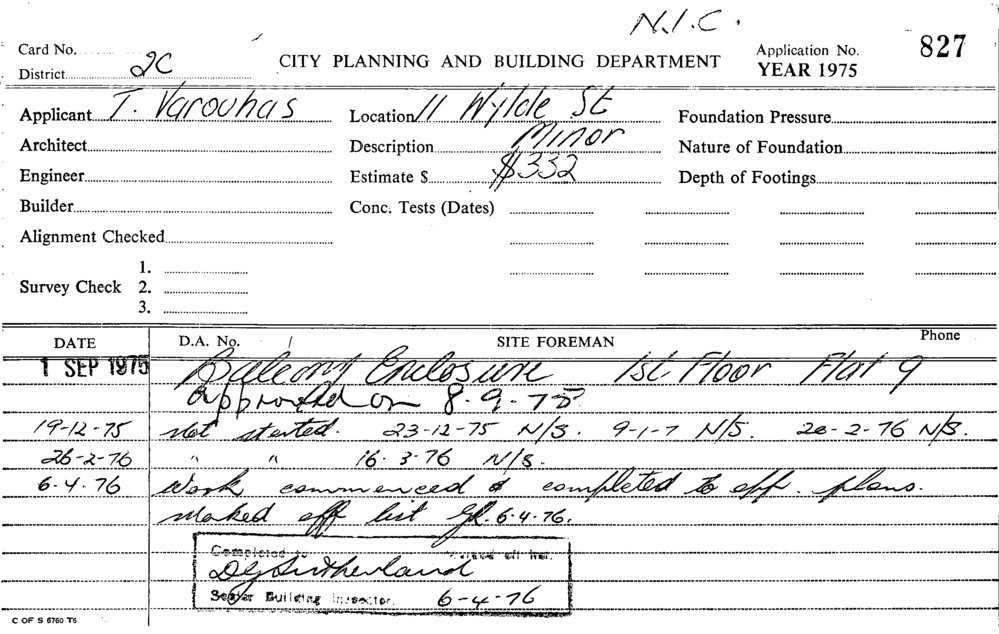 N.I.C.
Card No.
District 2C
CITY PLANNING AND BUILDING DEPARTMENT
Application No. 827
YEAR 1975
Applicant T. Varouhas
Location 11 Wylde St
Foundation Pressure
Architect
Description Minor
Nature of Foundation
Engineer
Estimate $ $332
Depth of Footings
Builder
Conc. Tests (Dates)
Alignment Checked
Survey Check 1.
2.
3.
DATE D.A. No. / SITE FOREMAN Phone
1 SEP 1975 Balcony Enclosure 1st Floor Flat 9
approved on 8-9-75
19-12-75 Not started. 23-12-75 N/S. 9-1-7 N/S. 20-2-76 N/S.
26-2-76 " " 16-3-76 N/S.
6-4-76 Work commenced & completed to app. plans.
Marked off list 6-4-76.
Completed to
DG Sutherland
Senior Building Inspector. 6-4-76
C OF S 6760 T6